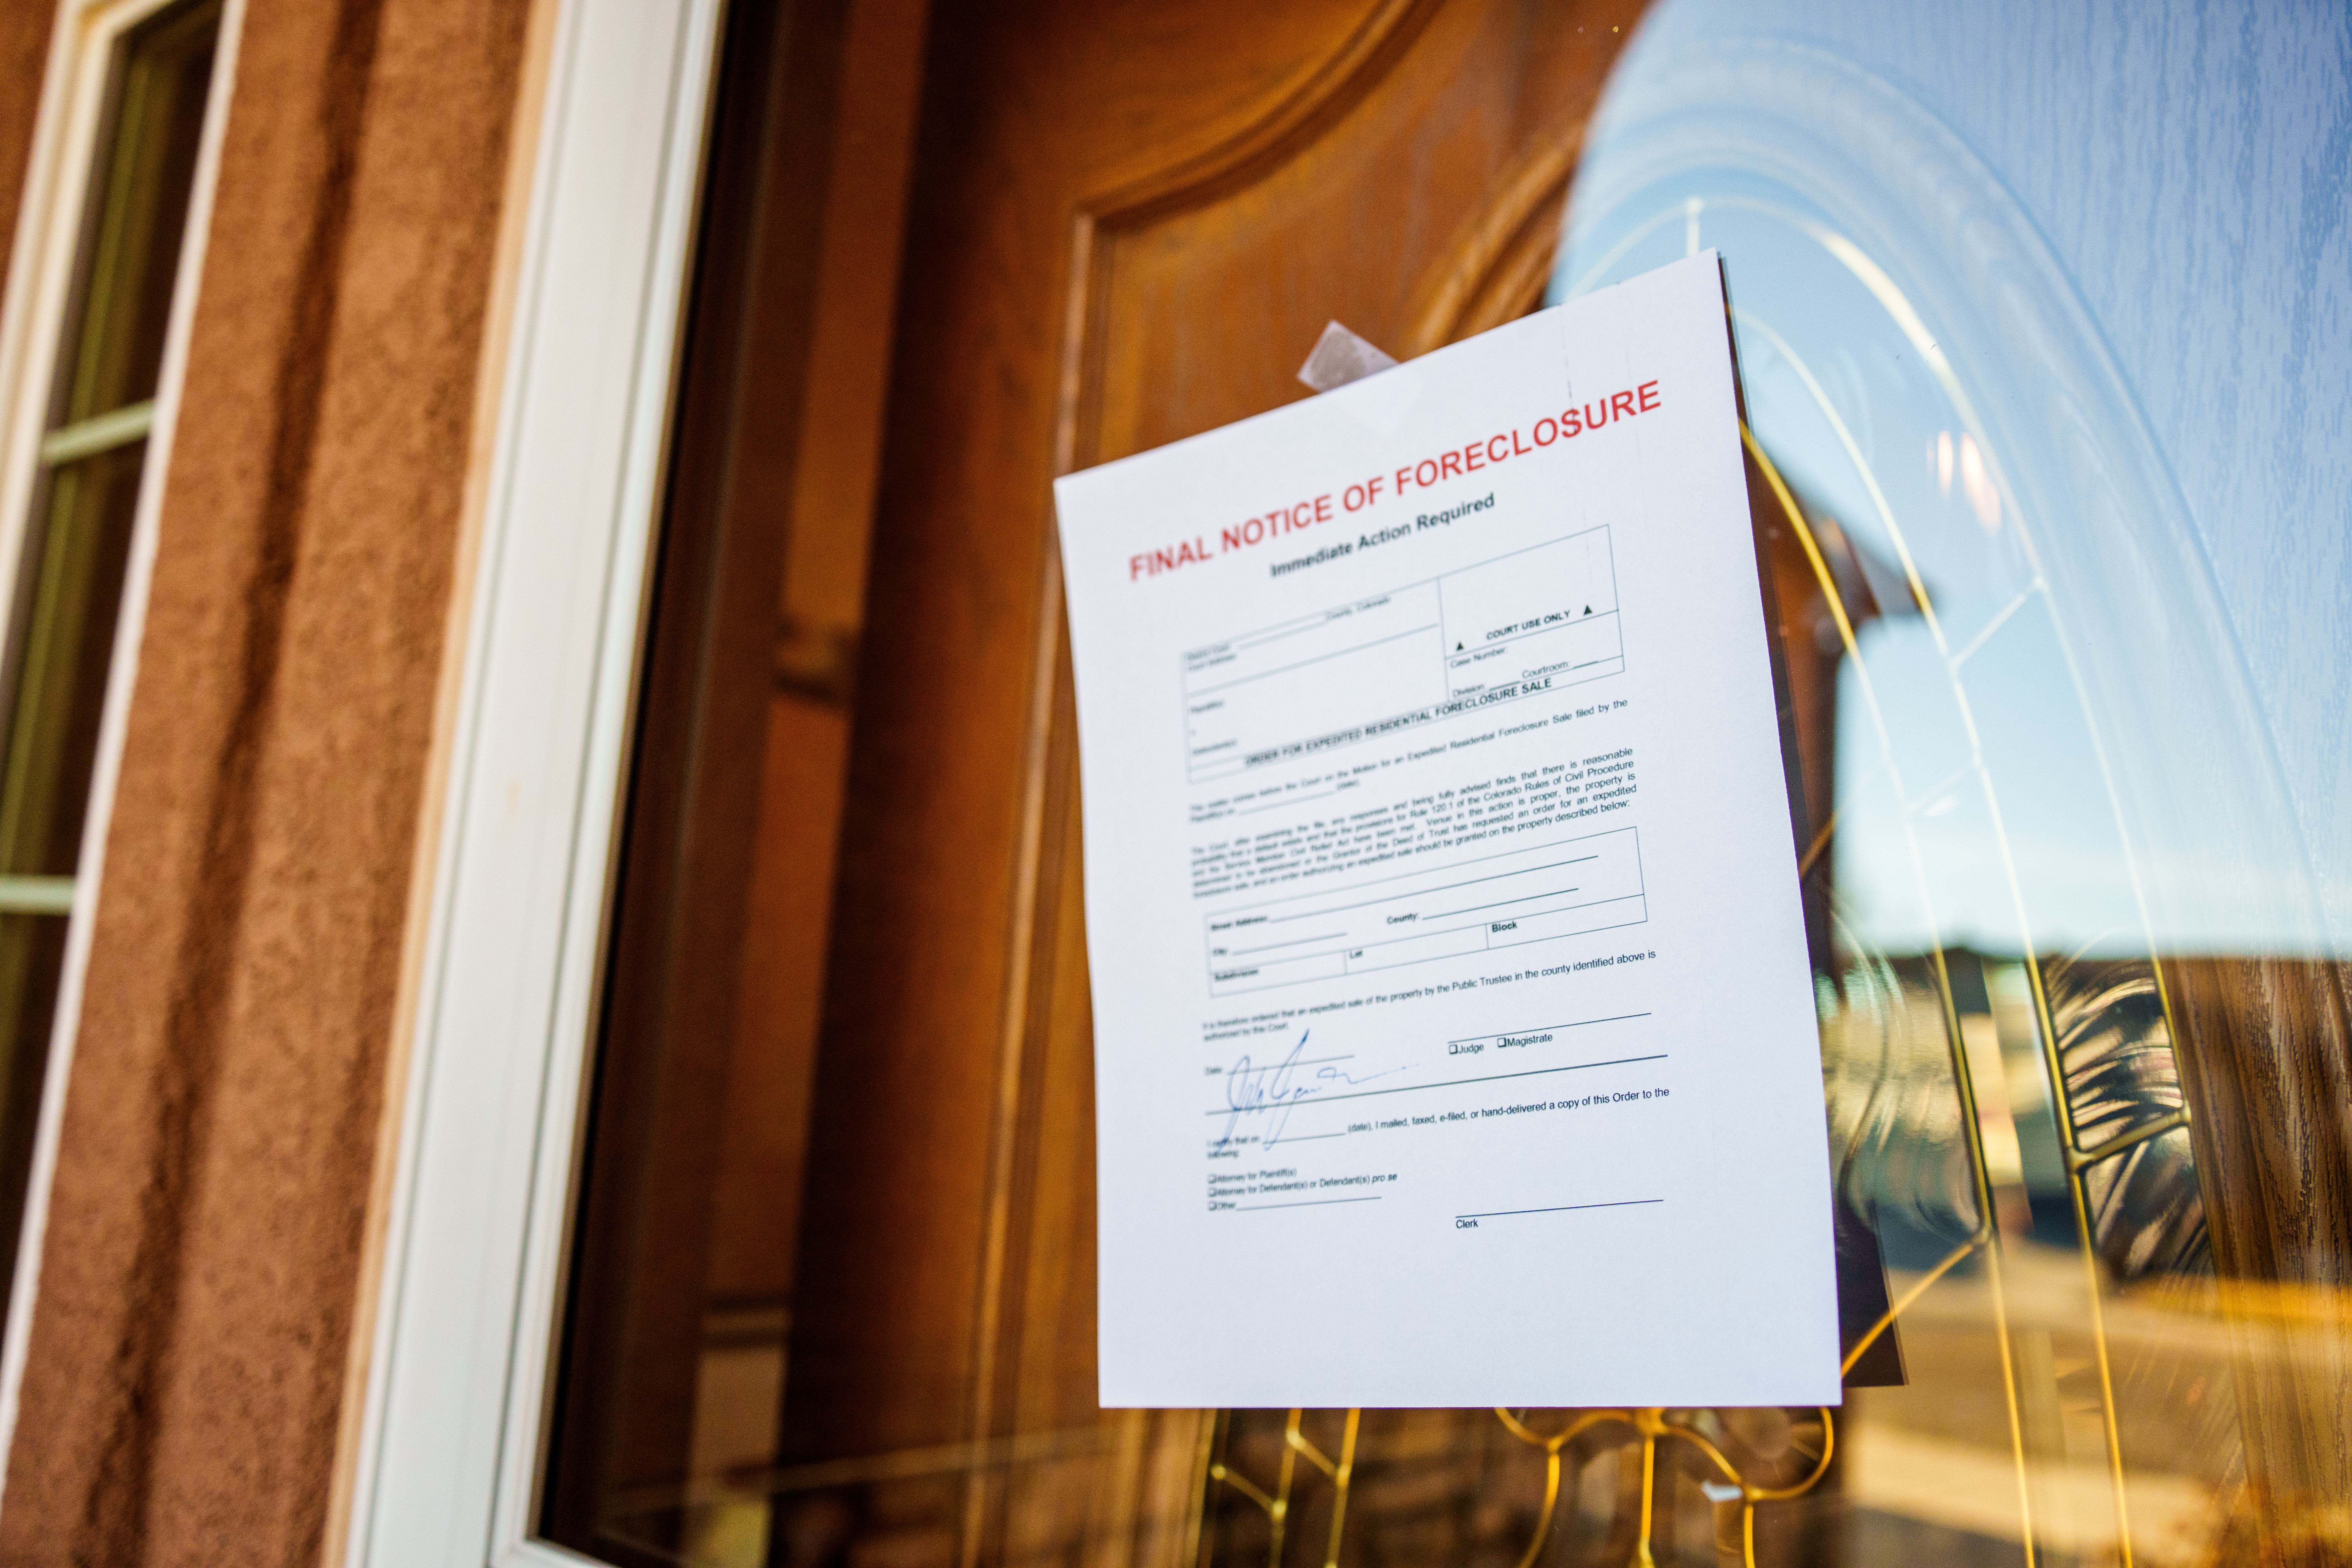 FINAL NOTICE OF FORECLOSURE
Immediate Action Required
County, Colorado
District Court
Court Address:
Plaintiff(s):
v.
Defendant(s):
▲ COURT USE ONLY ▲
Case Number:
Division: Courtroom:
ORDER FOR EXPEDITED RESIDENTIAL FORECLOSURE SALE
This matter comes before the Court on the Motion for an Expedited Residential Foreclosure Sale filed by the
Plaintiff on (date).
The Court, after examining the file, any responses and being fully advised finds that there is reasonable
probability that a default exists and that the provisions for Rule 120.1 of the Colorado Rules of Civil Procedure
and the Service Member Civil Relief Act have been met. Venue in this action is proper, the property is
determined to be abandoned or the Grantor of the Deed of Trust has requested an order for an expedited
foreclosure sale, and an order authorizing an expedited sale should be granted on the property described below:
Street Address:
City: County:
Subdivision Lot Block
It is therefore ordered that an expedited sale of the property by the Public Trustee in the county identified above is
authorized by this Court.
Date:
❑Judge ❑Magistrate
I certify that on (date), I mailed, faxed, e-filed, or hand-delivered a copy of this Order to the
following:
❑Attorney for Plaintiff(s)
❑Attorney for Defendant(s) or Defendant(s) pro se
❑Other
Clerk